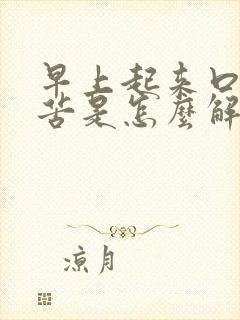 早上起来口
苦是怎麼解
凉月